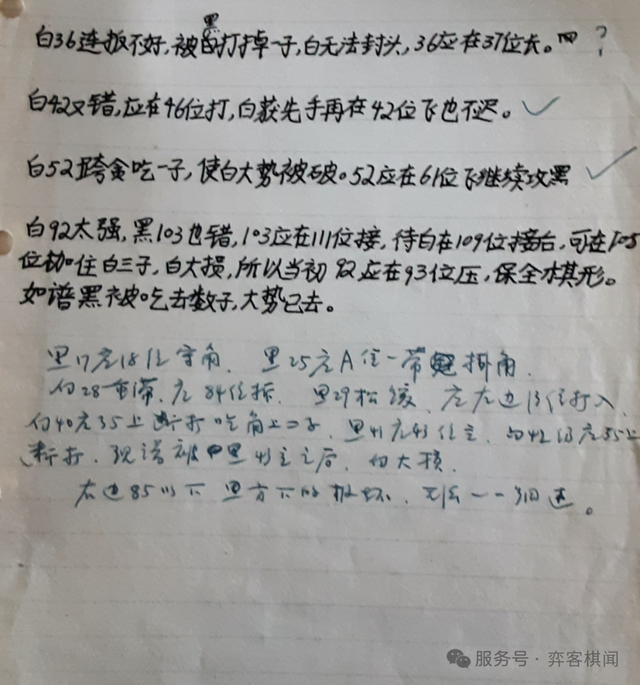 白36连扳不好,被黑打掉一子,白无法封头,36应在37位长。 ?
白42又错,应在46位打,白获先手再在42位飞也不迟。
白52跨贪吃一子,使白大势被破。52应在61位飞继续攻黑
白92太强,黑103也错,103应在111位接,待白在109位接后,可在105
位枷住白三子,白大损,所以当初92应在93位压,保全棋形。
如谱黑被吃去数子,大势已去。
黑17应18位守角, 黑25应A位一带 掛角.
白28重滞,应84位拆. 黑29松缓,应左边 位打入,
白40应35上断打吃角上二子,黑41应43位立,白42仍应35上
断打,现谱被黑 立之后,白大损.
右边85以下黑方下的 坏,无法一一 。
服务号·弈客棋闻